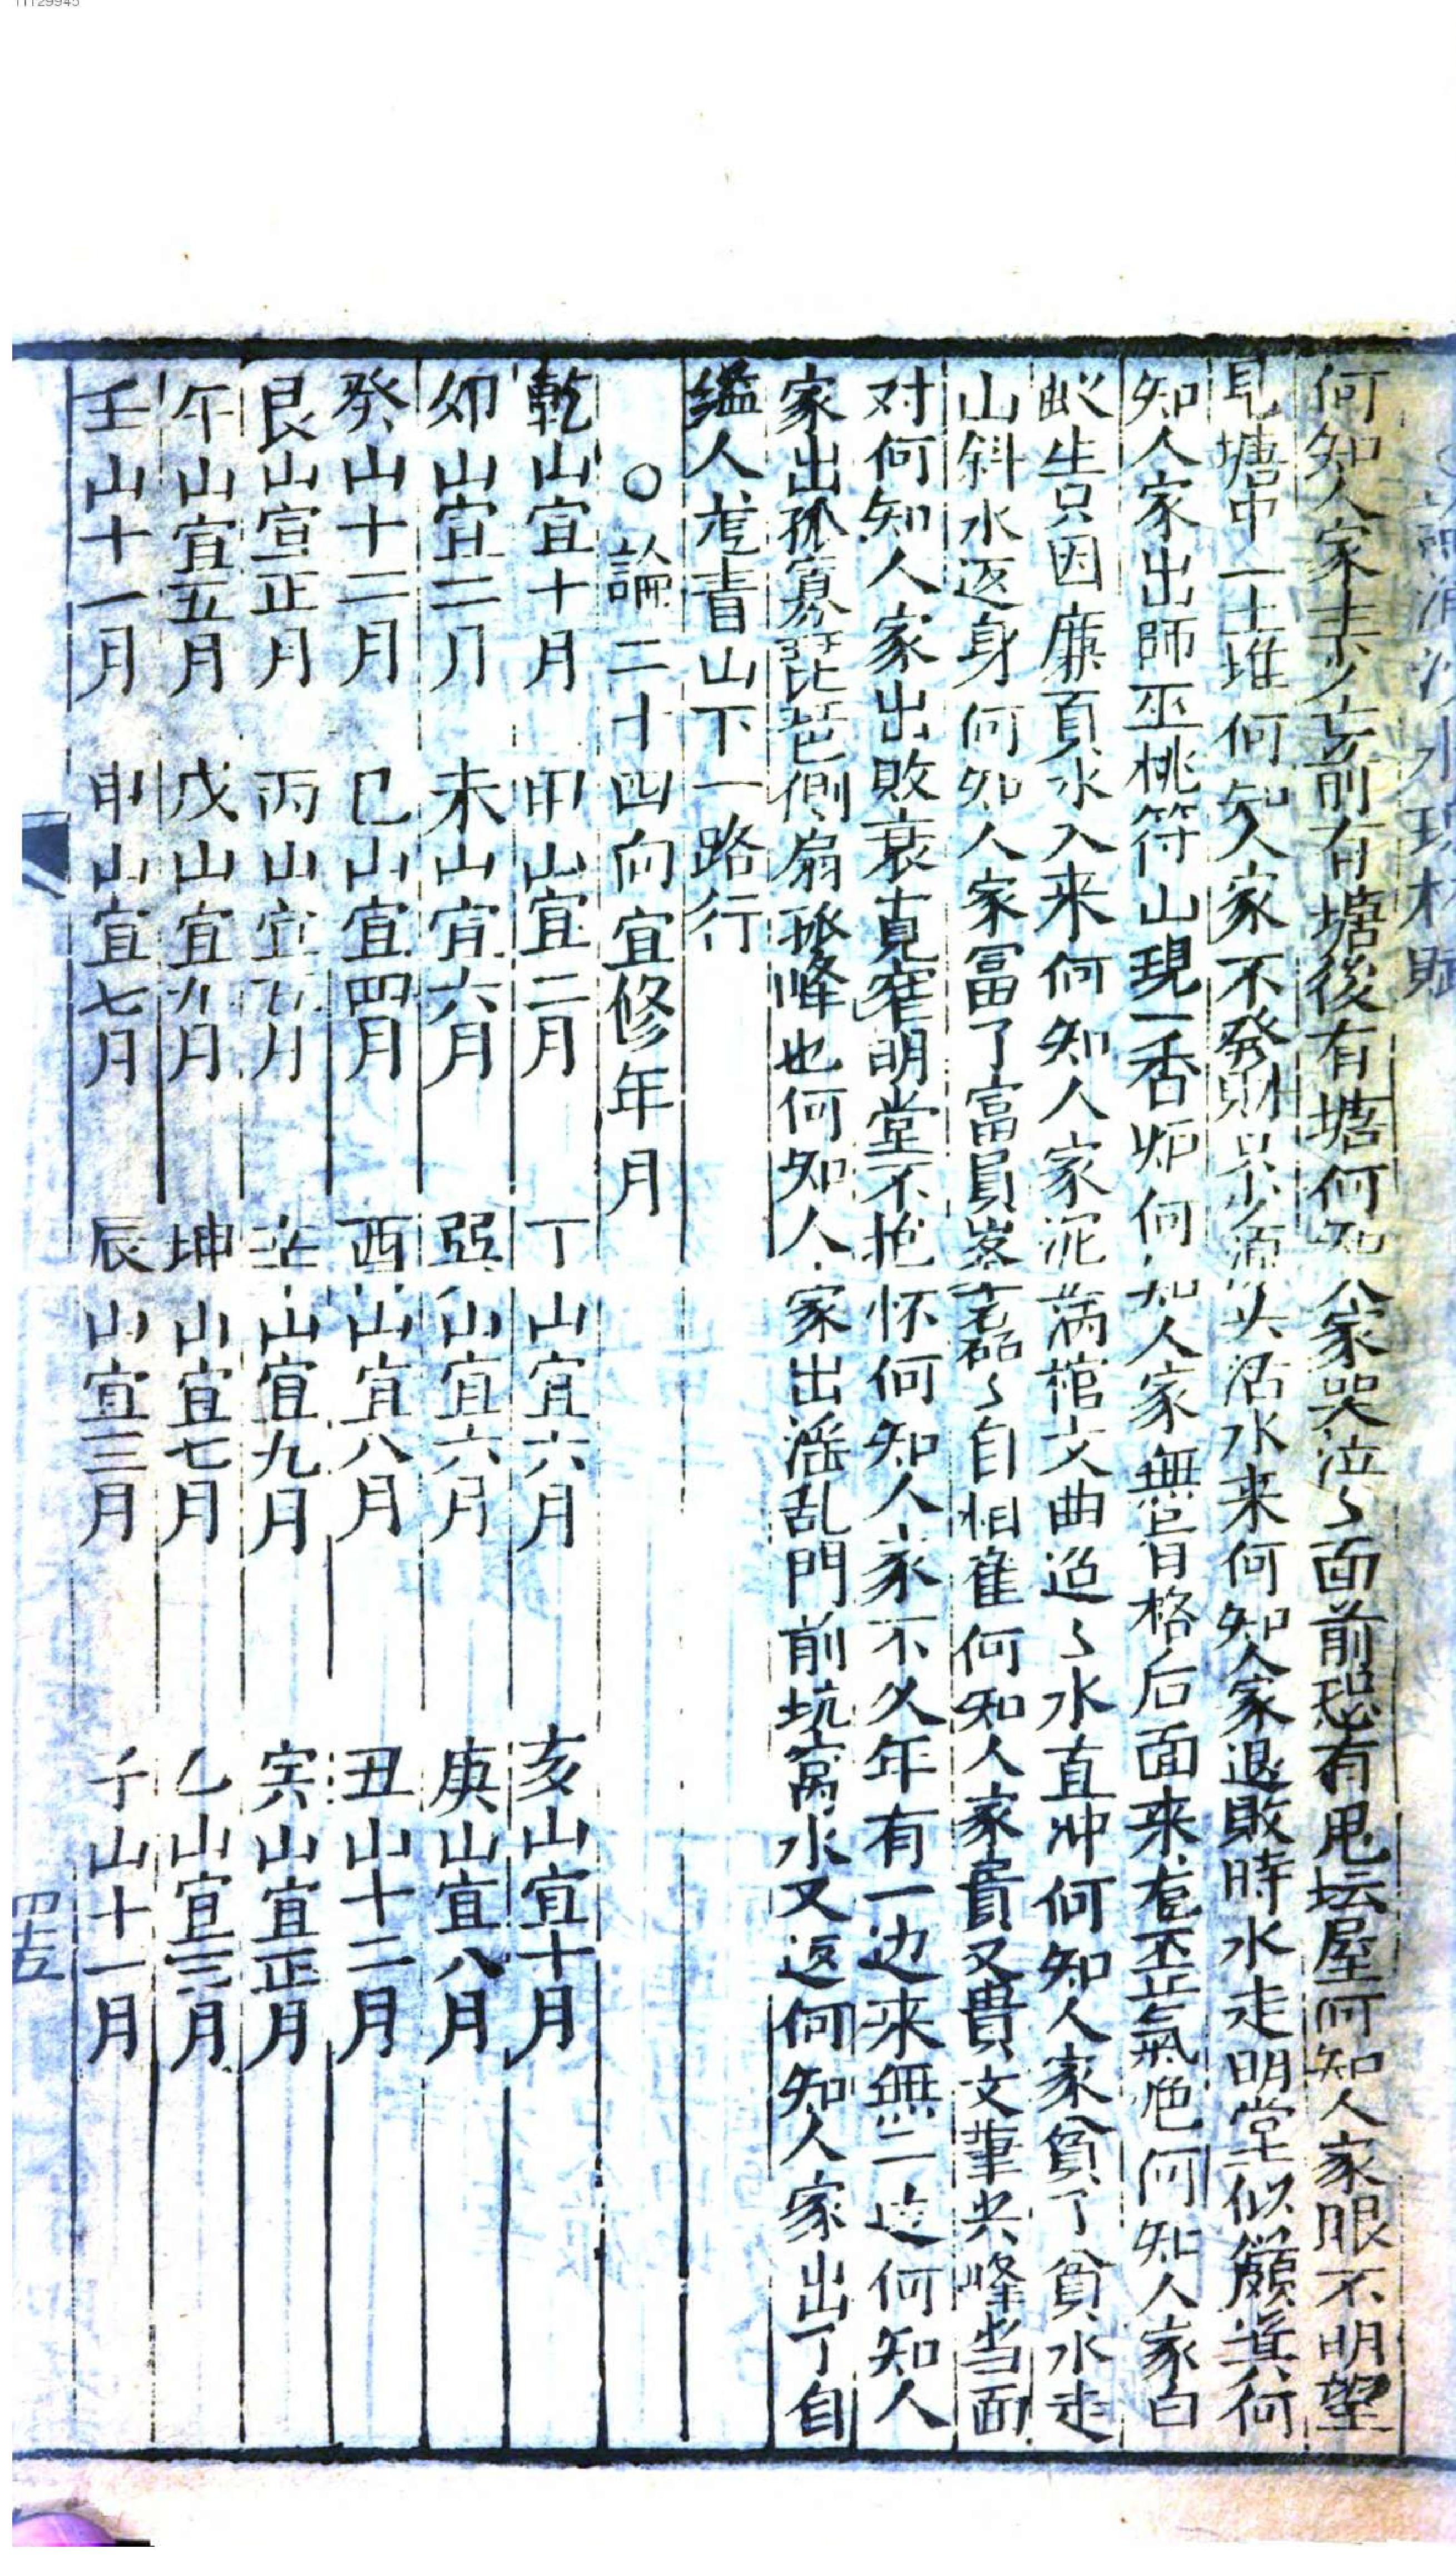 何知人家夭少亡前有塘後有塘何知人家哭泣〻面前恐有鬼坛屋何知人家眼不明望
見塘中一土堆何知人家不發財只少源头活水来何知人家退敗時水走明堂似簸箕何
知人家出師巫桃符山現一香炉何知人家無旨格后面来无丕氣色何知人家白
蚁生只因廉貞水入来何知人家泥满棺文曲迢〻水直冲何知人家貧了貧水走
山斜水返身何知人家富了富員峯磊〻自相崔何知人家貴又貴文筆尖峰当面
对何知人家出敗衰克窄明堂不抱怀何知人家不久年有一边来無一边何知人
家出孤寡琵琶側扇孤峰也何知人家出淫乱門前坑窩水又返何知人家出了自
缢人龙青山下一路行
○論二十四向宜修年月
乾山宜十月 甲山宜二月 丁山宜六月 亥山宜十月
卯山宜二月 未山宜六月 巽山宜六月 庚山宜八月
癸山十二月 巳山宜四月 酉山宜八月 丑山十二月
艮山宜正月 丙山宜 月 山宜九月 寅山宜正月
午山宜五月 戊山宜九月 坤山宜七月 乙山宜三月
壬山十一月 申山宜七月 辰山宜三月 子山十一月
四五
11129945